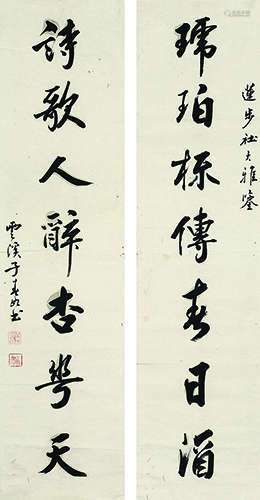 蓮步社大雅鑒
琥珀杯傳春日酒
詩歌人醉杏華天
雲溪子書